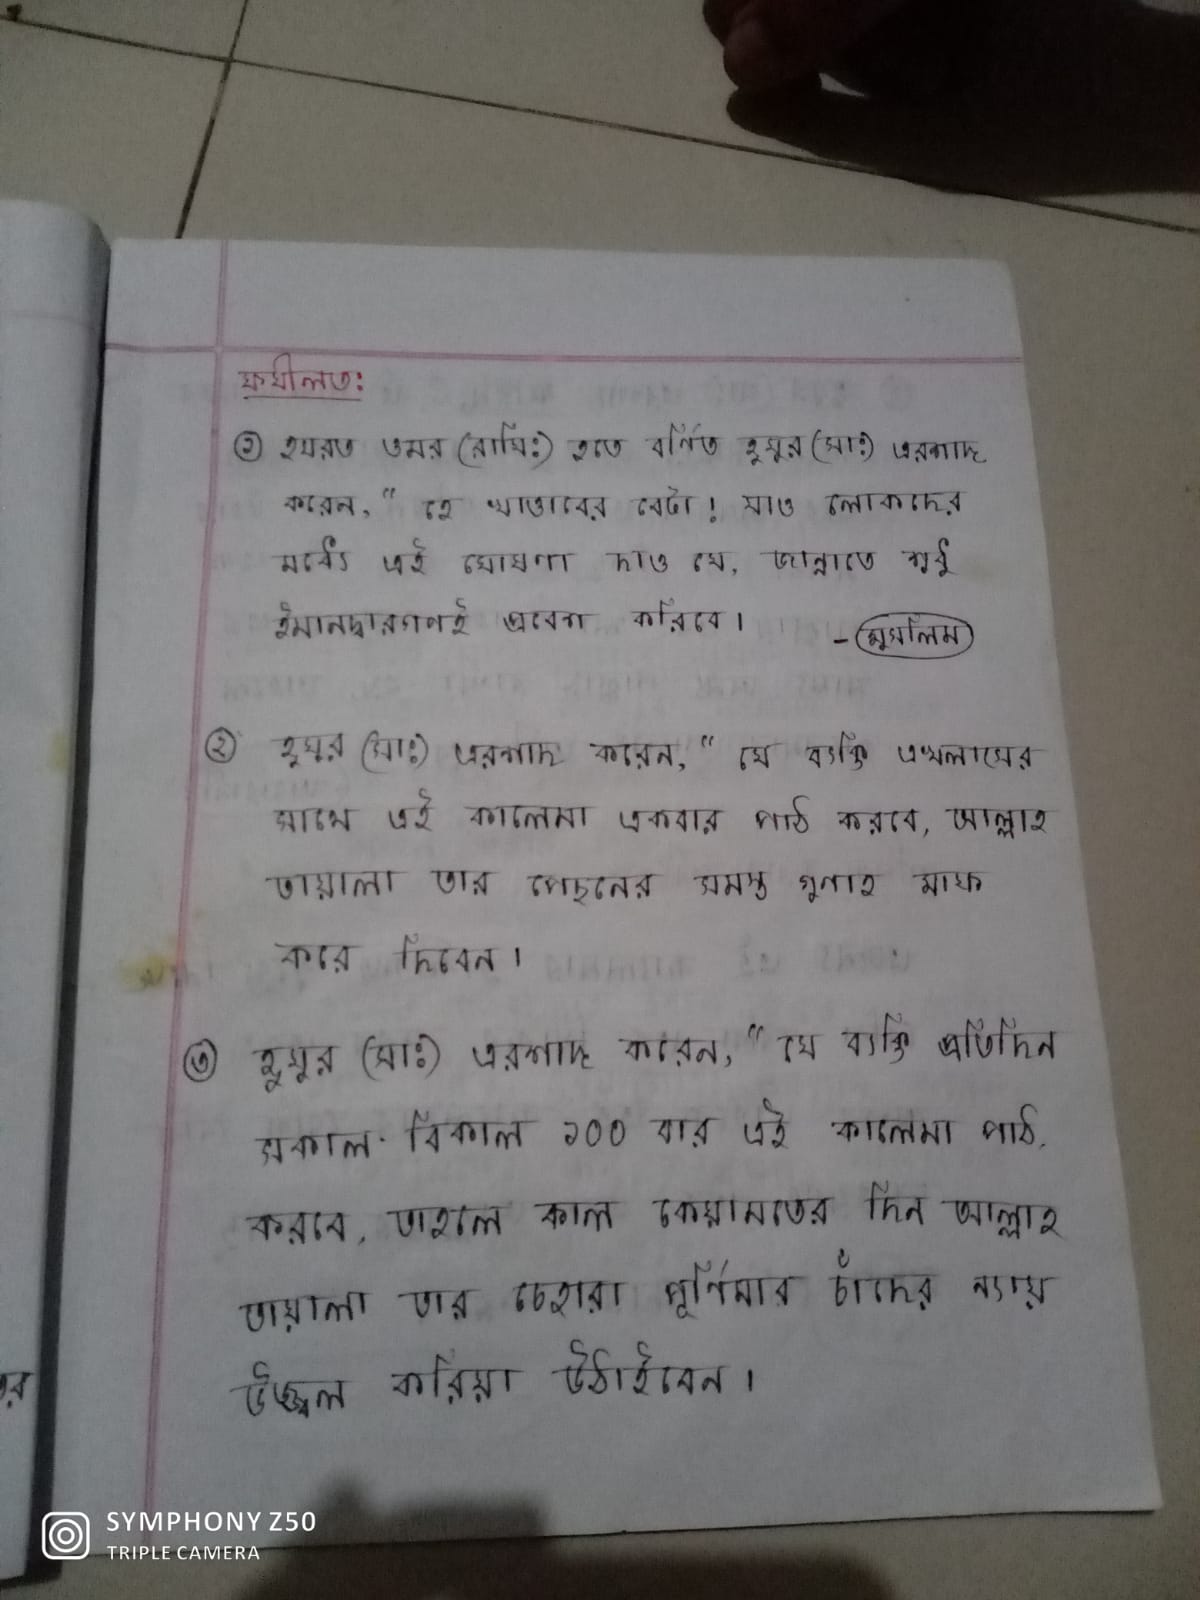 ফযীলত:
① হযরত ওমর (রাযি:) হতে বর্ণিত হুযুর (সা:) এরশাদ
করেন, " হে খাত্তাবের বেটা! যাও লোকদের
মধ্যে এই ঘোষণা দাও যে, জান্নাতে শুধু
ঈমানদ্বারগণই প্রবেশ করিবে।
- মুসলিম
② হুযুর (সা:) এরশাদ করেন, " যে ব্যক্তি এখলাসের
সাথে এই কালেমা একবার পাঠ করবে, আল্লাহ
তায়ালা তার পেছনের সমস্ত গুনাহ মাফ
করে দিবেন।
③ হুযুর (সা:) এরশাদ করেন, " যে ব্যক্তি প্রতিদিন
সকাল-বিকাল ১০০ বার এই কালেমা পাঠ
করবে, তাহলে কাল কেয়ামতের দিন আল্লাহ
তায়ালা তার চেহারা পূর্ণিমার চাঁদের ন্যায়
উজ্জ্বল করিয়া উঠাইবেন।
SYMPHONY Z50
TRIPLE CAMERA